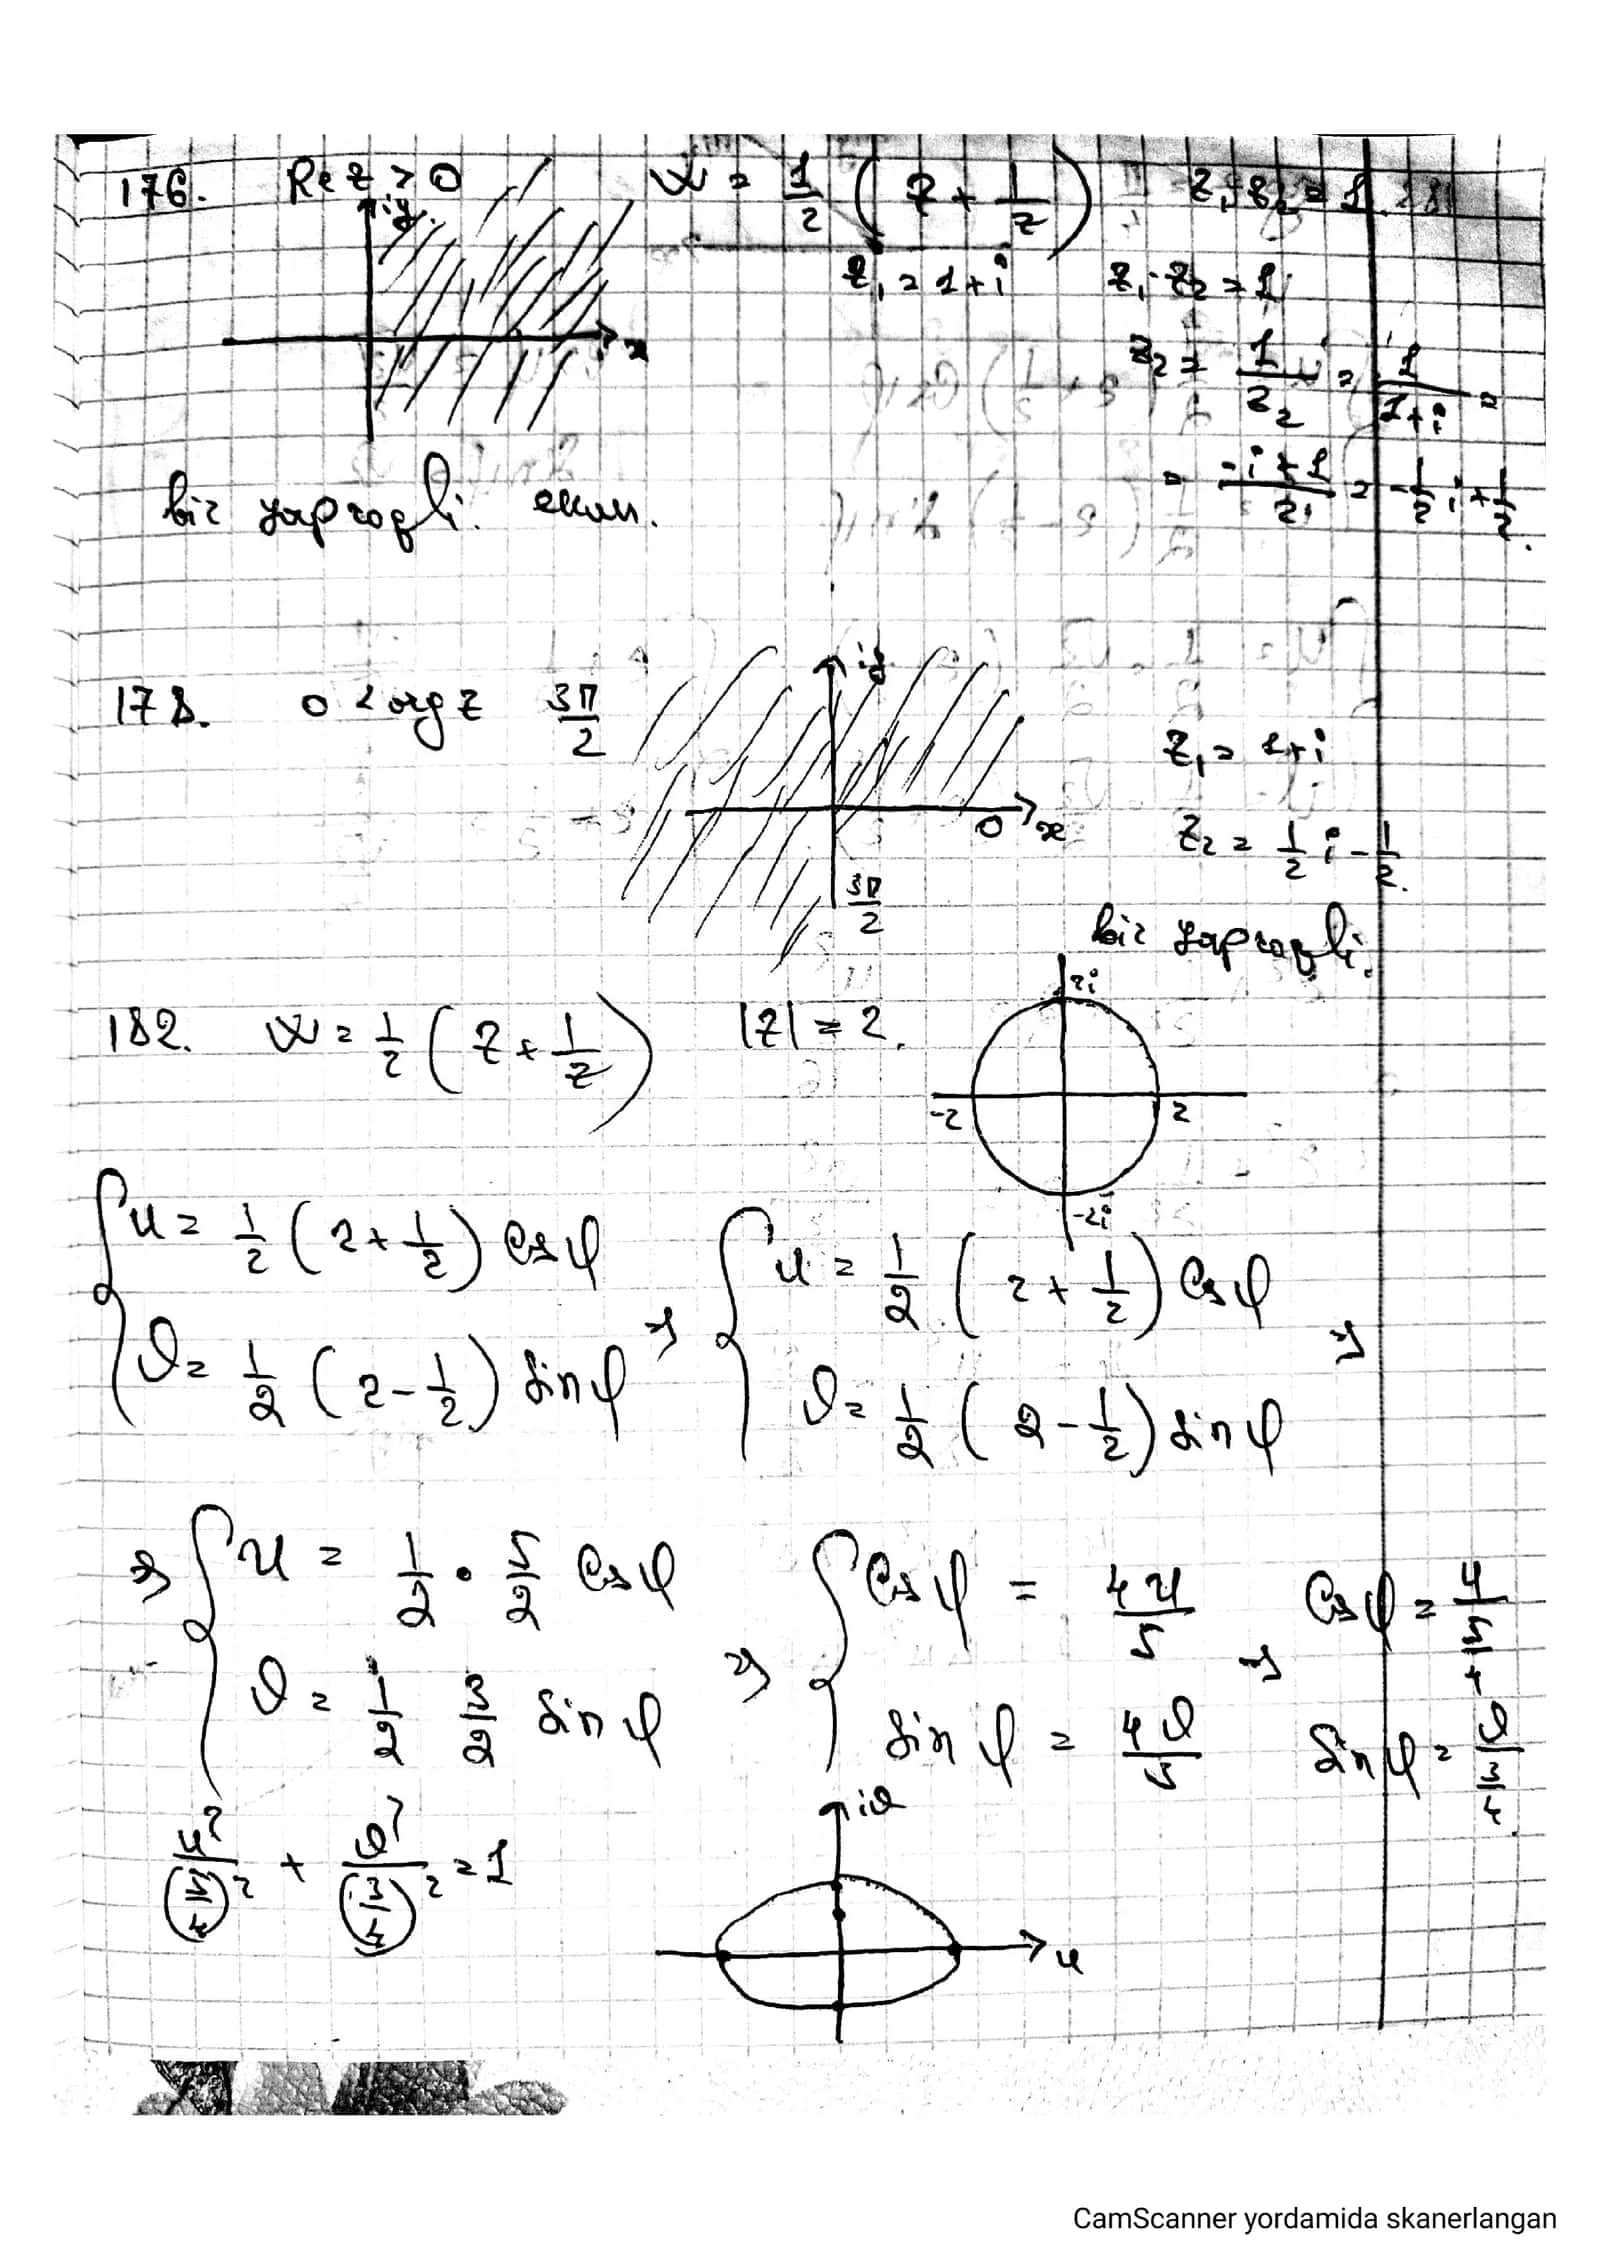 176. Re z > 0 w = 1/2 (z + 1/z) z₁ · z₂ = 1
iy
z₁ = 1+i z₁ · z₂ = 1
x
z₂ = 1/z₂ = 1/(1+i) =
= (-i+1)/2i = -1/2 i + 1/2.
bir yaproqli. ekan.
178. 0 < arg z 3π/2
iy
z₁ = 1+i
0 x
z₂ = 1/2 i - 1/2.
3π/2
bir yaproqli.
182. w = 1/2 (z + 1/z) |z| = 2.
2i
-2 2
-2i
{ u = 1/2 (2 + 1/2) cos φ ⇒ { u = 1/2 (2 + 1/2) cos φ ⇒
ϑ = 1/2 (2 - 1/2) sin φ ϑ = 1/2 (2 - 1/2) sin φ
⇒ { u = 1/2 · 5/2 cos φ ⇒ { cos φ = 4u/5 ⇒ cos φ = u/(5/4)
ϑ = 1/2 3/2 sin φ sin φ = 4ϑ/5 sin φ = ϑ/(3/4).
u²/(5/4)² + ϑ²/(3/4)² = 1
iϑ
u
CamScanner yordamida skanerlangan